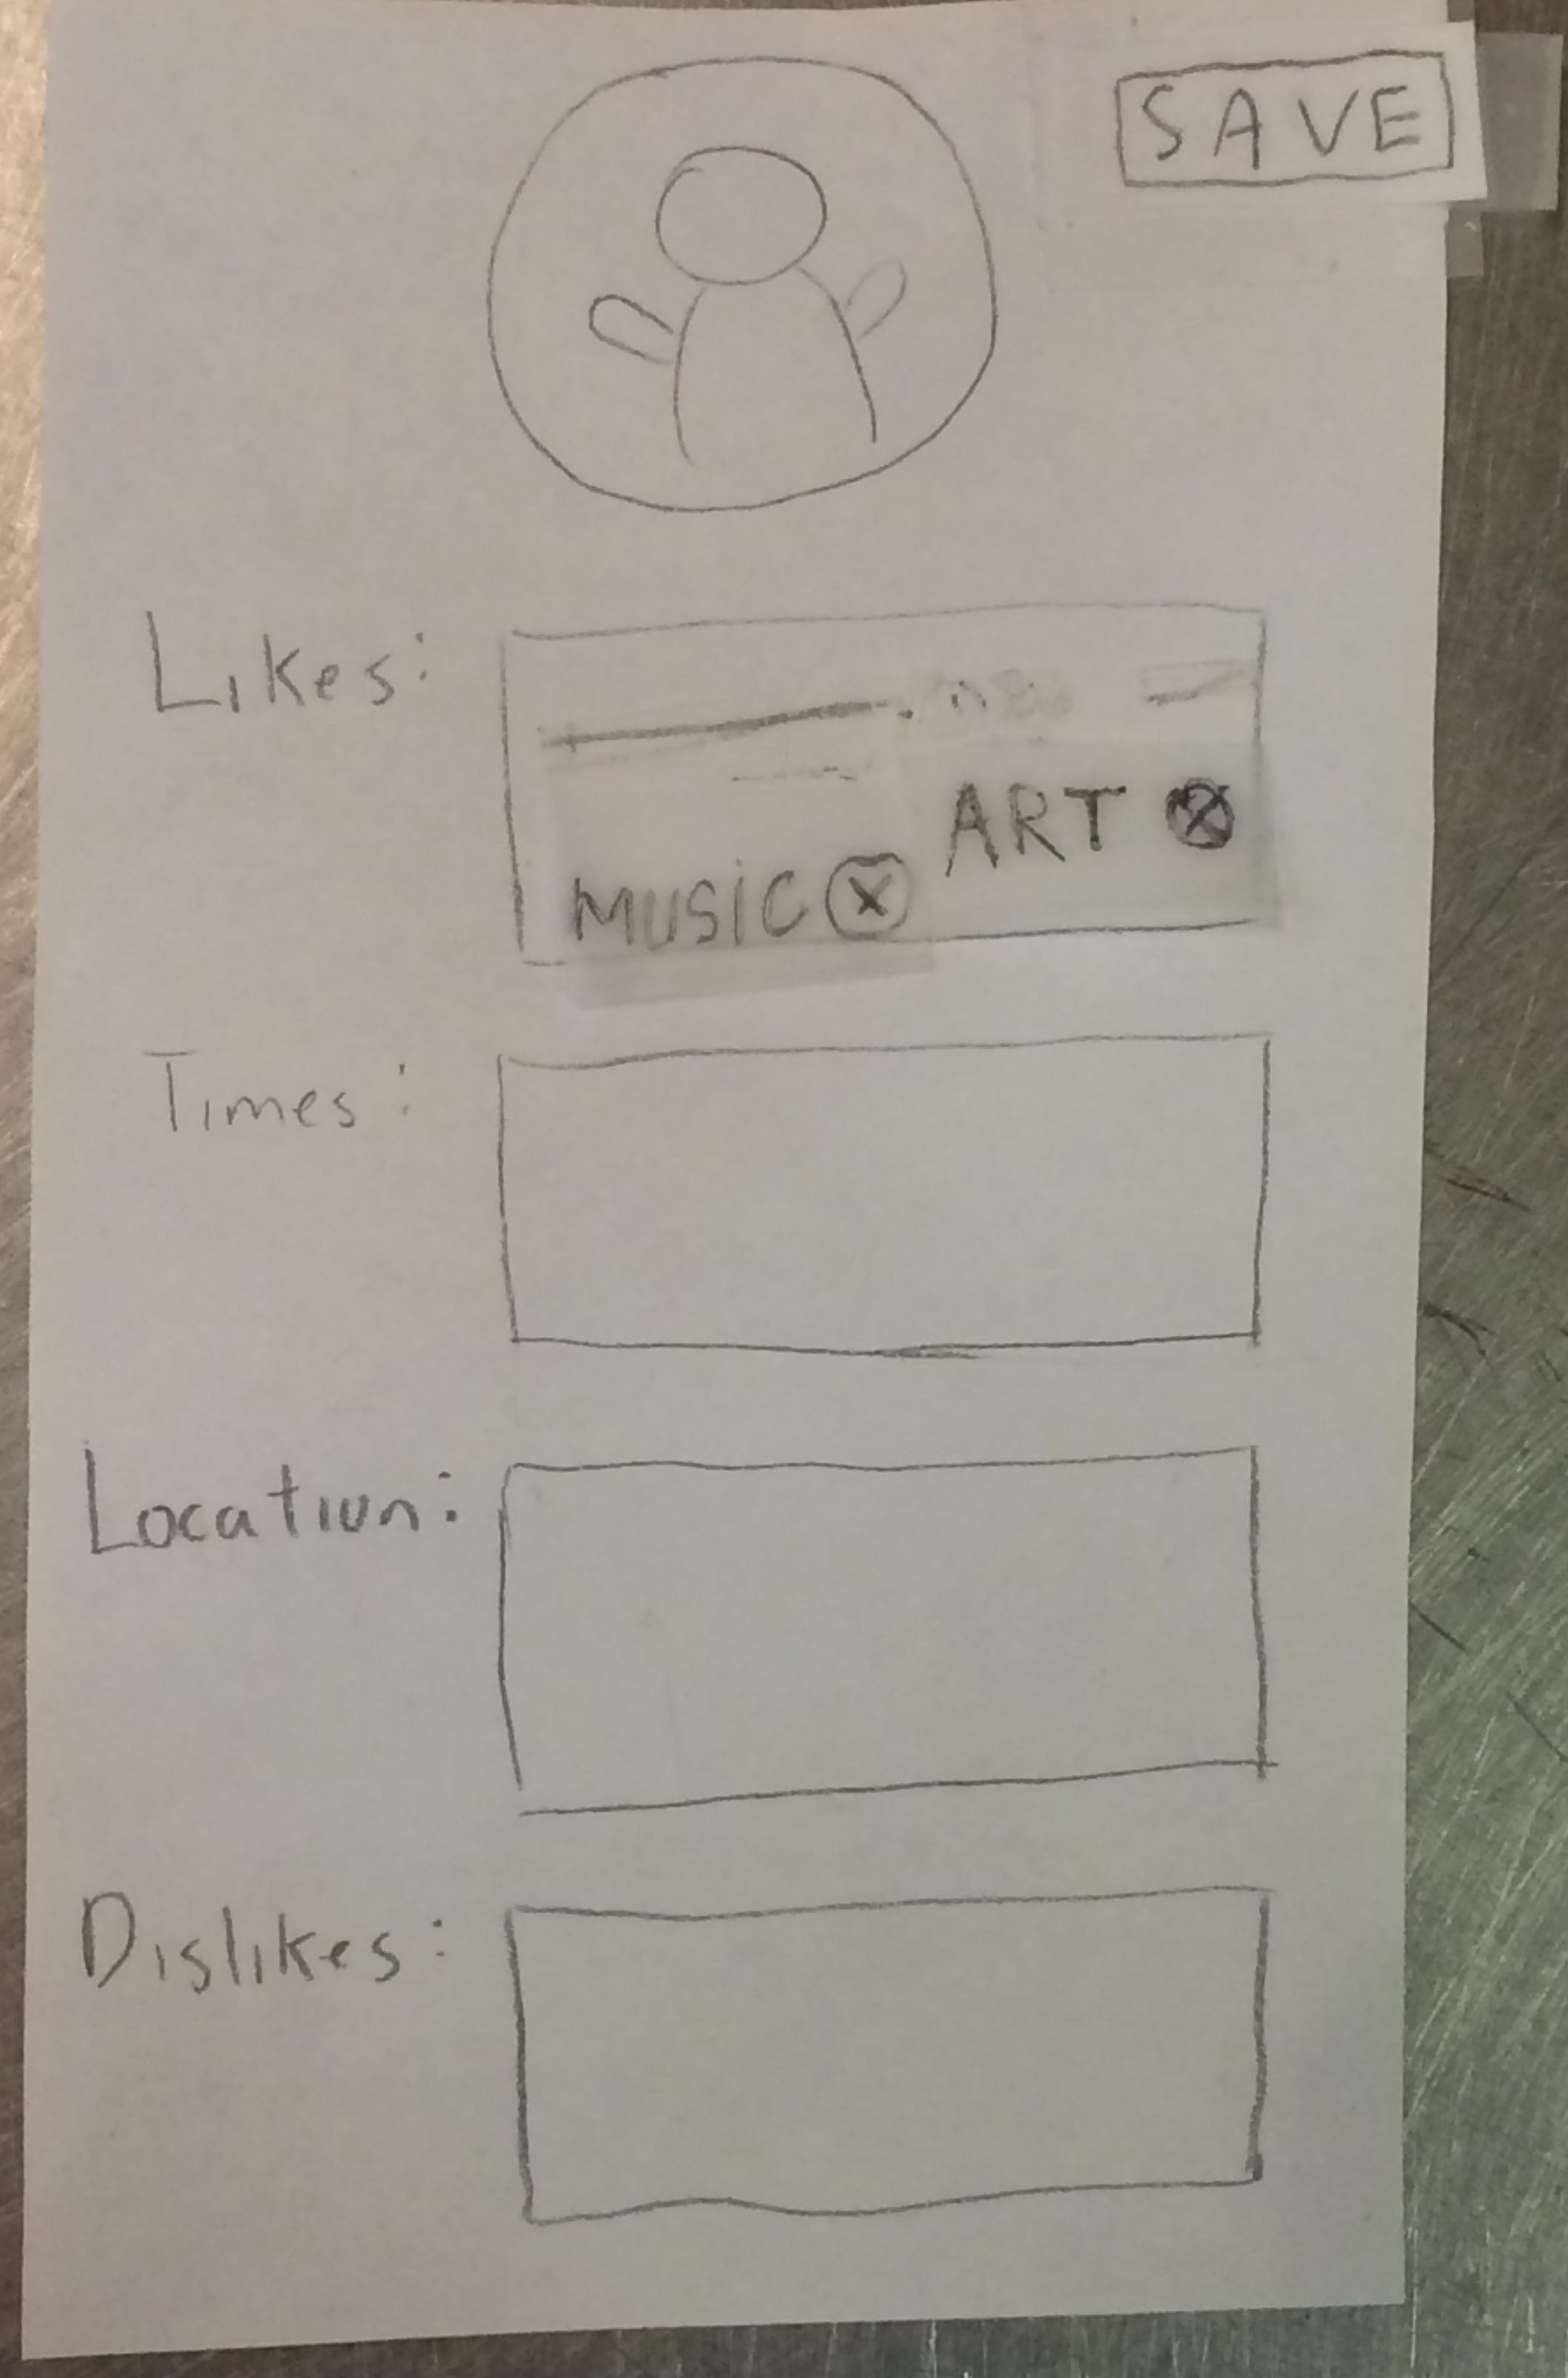 SAVE
Likes:
ART X
MUSIC X
Times:
Location:
Dislikes: